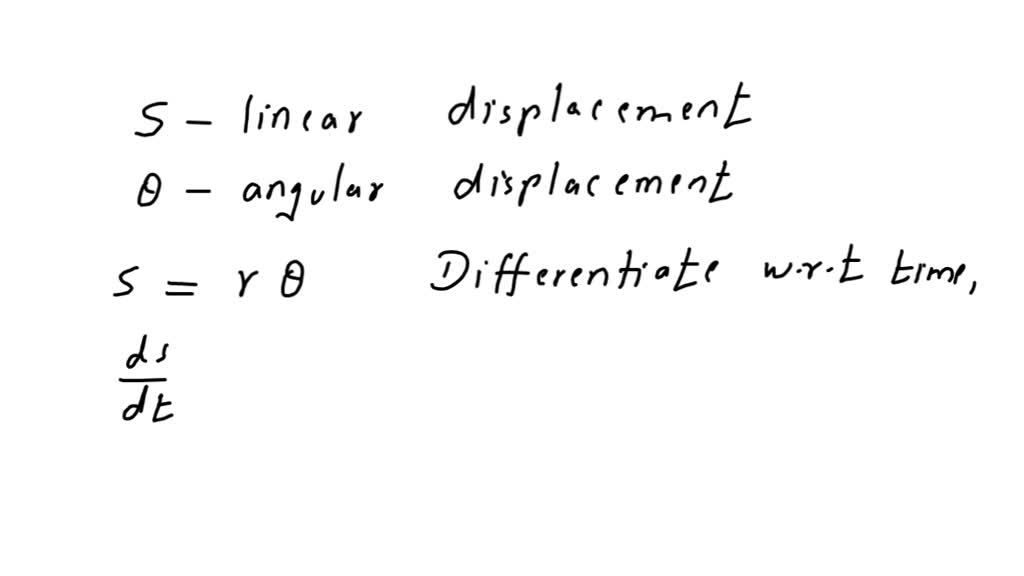 S - linear displacement
θ - angular displacement
S = r θ Differentiate w.r.t time,
ds
dt